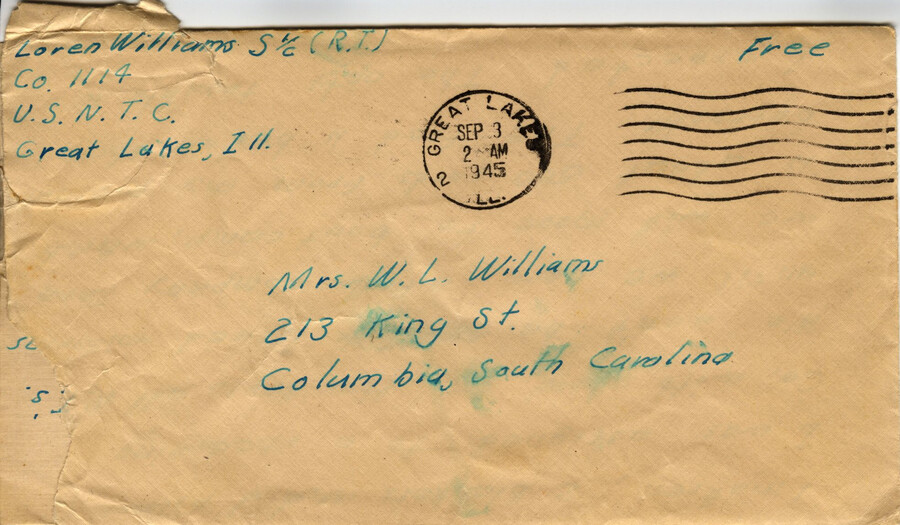 Loren Williams S 1/c (R.T.)
Co. 1114
U.S.N.T.C.
Great Lakes, Ill.
Free
GREAT LAKES
SEP 3
2 AM
1945
2 ILL.
Mrs. W. L. Williams
213 King St.
Columbia, South Carolina